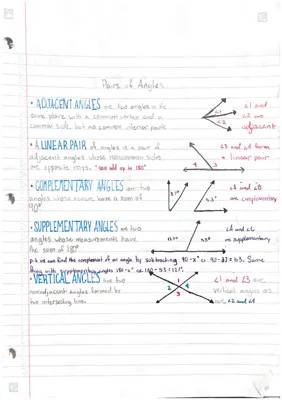 Pairs of Angles
• ADJACENT ANGLES are two angles in the
same plane with a common vertex and a
common side, but no common interior points
∠1 and
∠2 are
adjacent
1
2
• A LINEAR PAIR of angles is a pair of
adjacent angles whose noncommon sides
are opposite rays. *can add up to 180°
∠3 and ∠4 form
a linear pair
4 3
• COMPLEMENTARY ANGLES are two
angles whose measures have a sum of
90°
∠A and ∠B
are complementary
37°
53°
• SUPPLEMENTARY ANGLES are two
angles whose measurements have
the sum of 180°
are supplementary
127° 53°
we can find the complement of an angle by subtracting. 90-x° or 90-37=53. Same
thing with supplementary angles
• VERTICAL ANGLES are two
nonadjacent angles formed by
two intersecting lines
∠1 and ∠3 are
vertical angles as
are ∠2 and ∠4
1
2 4
3